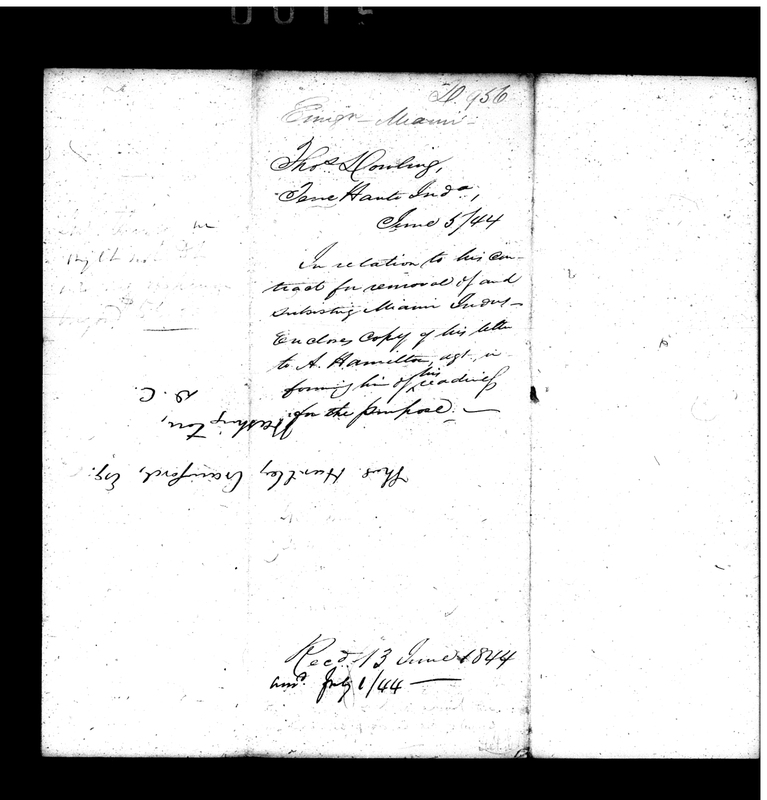 D. 956
Emigr - Miami -
Thos Dowling,
Terre Haute Inda,
June 5/44
In relation to his con-
tract for removal of and
subsisting Miami Inds -
Encloses copy of his letter
to A. Hamilton, agt, in
forming him of his readiness
for the purpose. -
Thos Hartley Crawford, Esq.
Washington,
D. C.
Recd. 13 June 1844
ansd. July 1/44